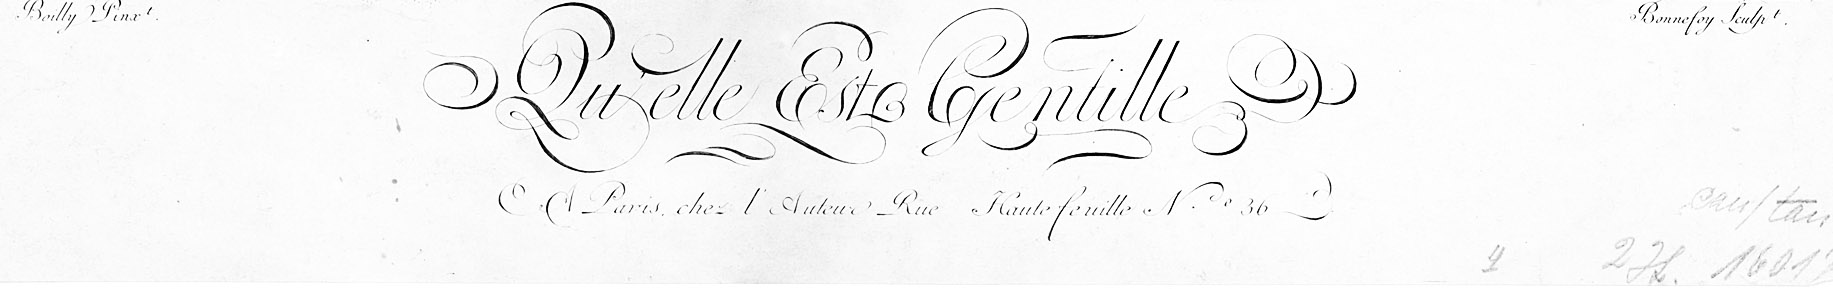 Boilly Pinx.t
Bonnefoy Sculp.t
Qu'elle Est Gentille
A Paris, chez l'Auteur Rue Hautefeuille N.o 36
4